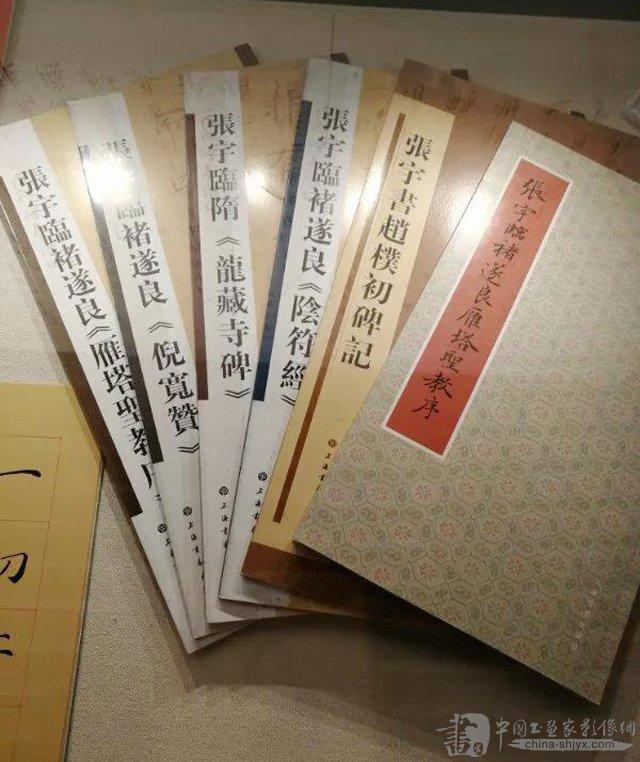 張宇臨褚遂良《雁塔聖教
張宇臨褚遂良《倪寬贊》
張宇臨隋《龍藏寺碑》
張宇臨褚遂良《陰符經》
張宇書趙樸初碑記
張宇臨褚遂良雁塔聖教序
上海書
上海書
上海書
上海書
一
切
中国书画家影像網
china-shjyx.com